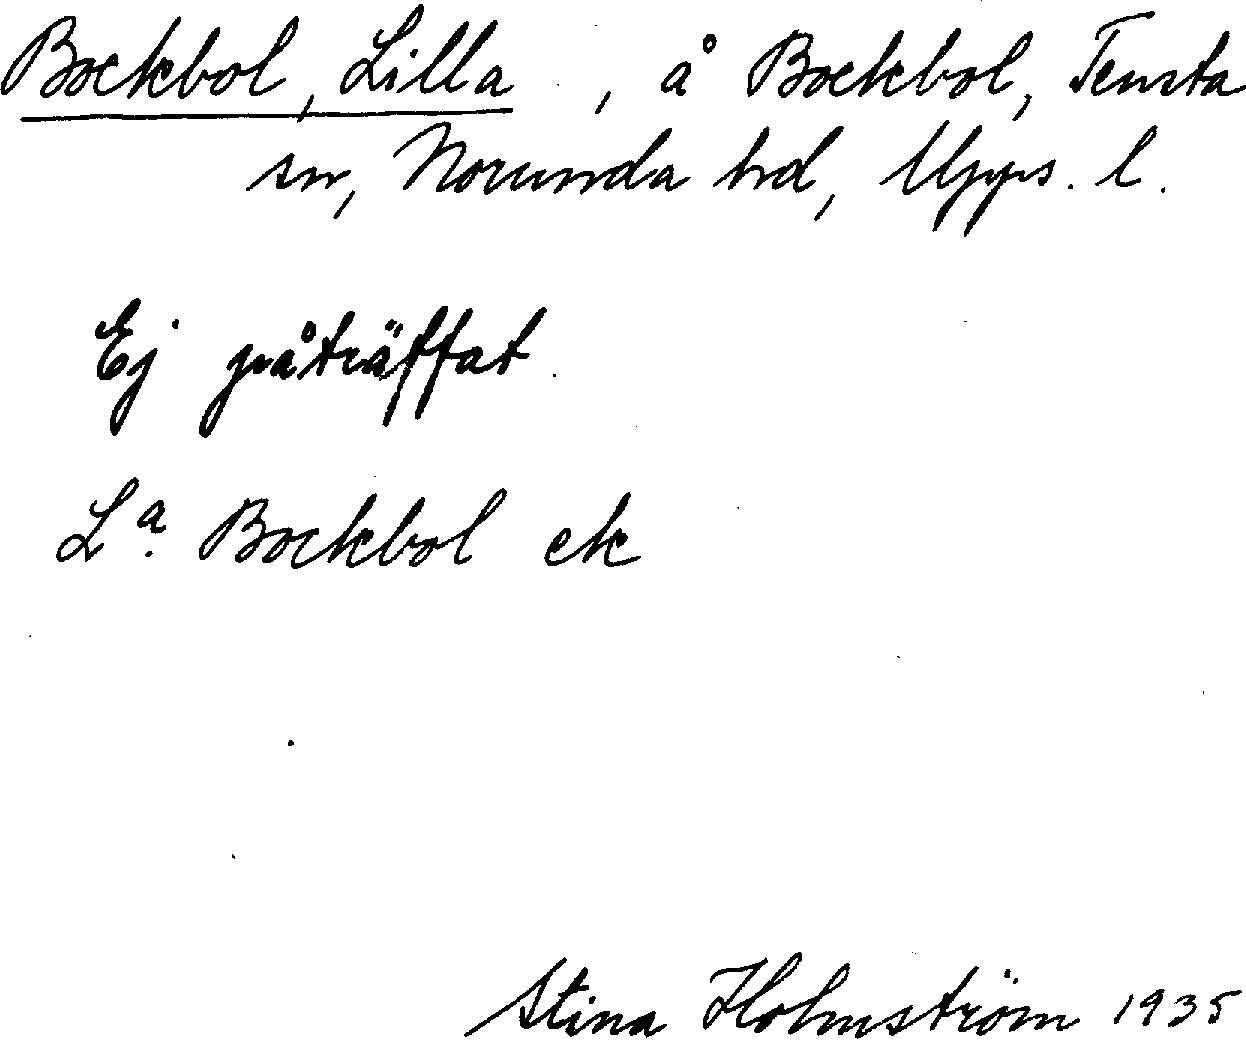 Bockbol, Lilla , å Bockbol, Tensta
sn, Norunda hd, Upps. l.
Ej påträffat.
L a. Bockbol ek
Stina Holmström 1935